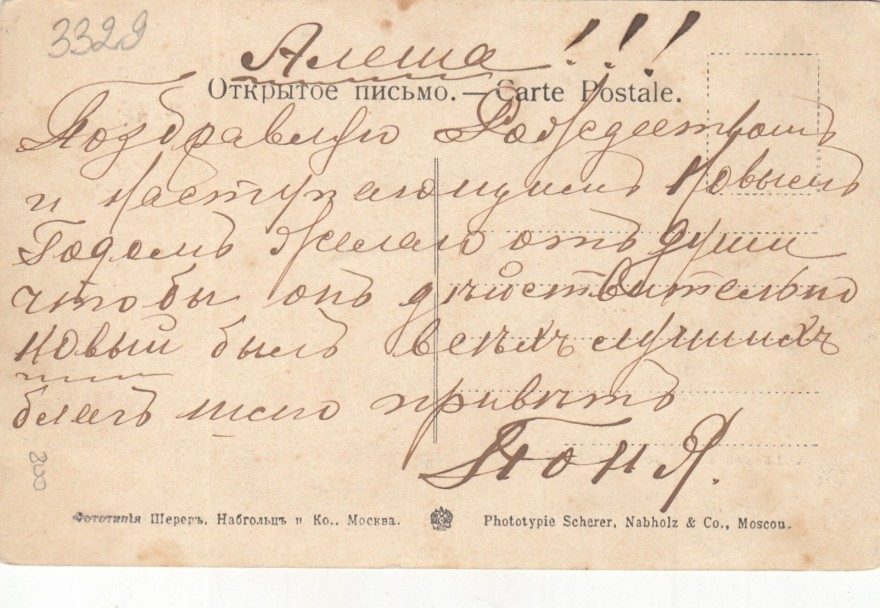 3329
Алеша!!!
Открытое письмо. — Carte Postale.
Поздравляю Рождествомъ
и наступающимъ Новымъ
Годомъ желаю отъ души
чтобы онъ дѣйствительно
новый былъ всѣхъ лучшихъ
благъ шлю привѣтъ
Тоня.
300
Фототипія Шереръ, Набгольцъ и Ко., Москва. Phototypie Scherer, Nabholz & Co., Moscou.